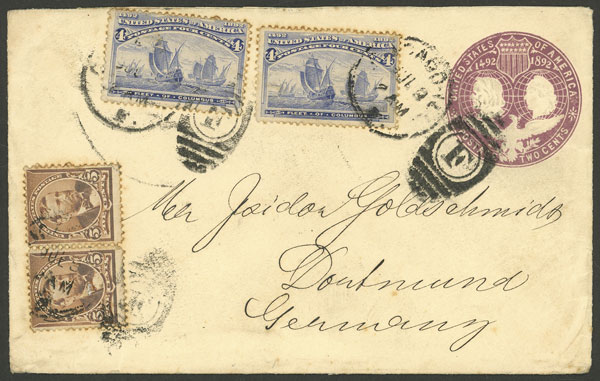 1492 1892
UNITED STATES OF AMERICA
POSTAGE FOUR CENTS
4 4
FLEET OF COLUMBUS
1492 1892
UNITED STATES OF AMERICA
POSTAGE FOUR CENTS
4 4
FLEET OF COLUMBUS
UNITED STATES OF AMERICA
1492 1892
TWO CENTS
JUL
Mr Isidor Goldschmidt
Dortmund
Germany
5 5
5 5